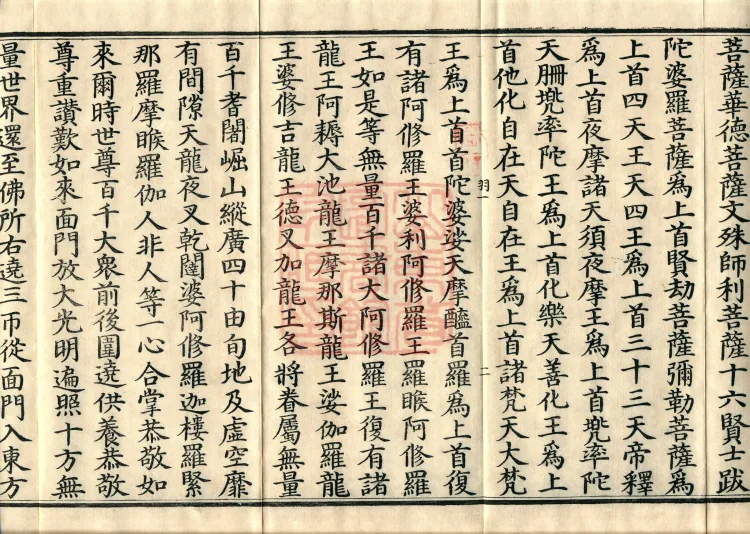 菩薩華德菩薩文殊師利菩薩十六賢士跋
陀婆羅菩薩爲上首賢劫菩薩彌勒菩薩爲
上首四天王天四王爲上首三十三天帝釋
爲上首夜摩諸天須夜摩王爲上首兠率陀
天刪兠率陀王爲上首化樂天善化王爲上
首他化自在天自在王爲上首諸梵天大梵
羽一
二
王爲上首首陀婆娑天摩醯首羅爲上首復
有諸阿修羅王婆利阿修羅王羅睺阿修羅
王如是等無量百千諸大阿修羅王復有諸
龍王阿耨大池龍王摩那斯龍王娑伽羅龍
王婆修吉龍王德叉加龍王各將眷屬無量
百千耆闍崛山縱廣四十由旬地及虛空靡
有間隙天龍夜叉乾闥婆阿修羅迦樓羅緊
那羅摩睺羅伽人非人等一心合掌恭敬如
來爾時世尊百千大衆前後圍遶供養恭敬
尊重讃歎如來面門放大光明遍照十方無
量世界還至佛所右遶三帀從面門入東方